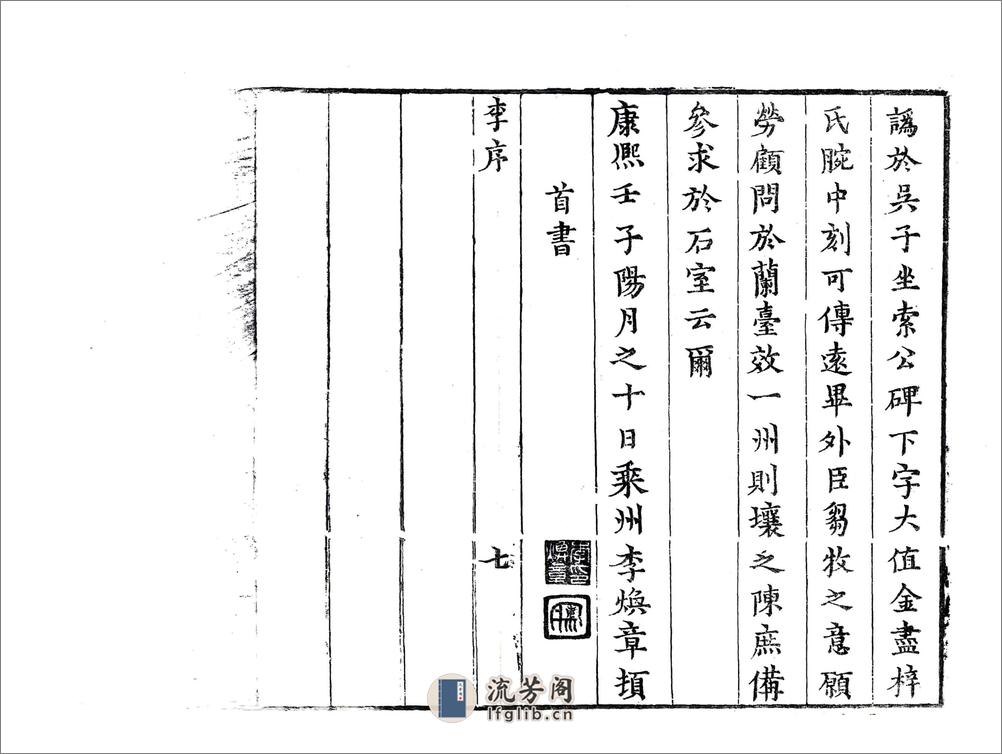 譌於吳子坐索公碑下字大值金盡梓
氏腕中刻可傳遠畢外臣芻牧之意願
勞顧問於蘭臺效一州則壤之陳庶備
參求於石室云爾
康熙壬子陽月之十日乘州李煥章頓
首書
李序
七
流芳阁
lfglib.cn